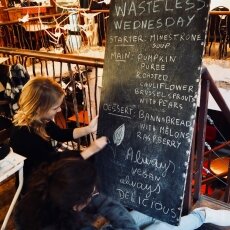 WASTELESS
WEDNESDAY
STARTER: MINESTRONE
SOUP
MAIN: PUMPKIN
PUREE
ROASTED
CAULIFLOWER
BRUSSEL SPROUTS
WITH PEARS
DESSERT: BANNABREAD
WITH MELONS
RASPBERRY
Always
VEGAN
always
DELICIOUS